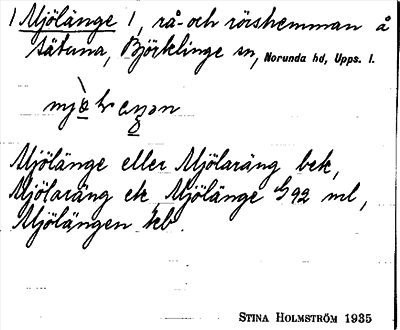 1 Mjölänge 1, rå- och rörshemman å
Sätuna, Björklinge sn, Norunda hd, Upps. l.
Mjölänge eller Mjölaräng bek,
Mjölaräng ek, Mjölänge G92 ml,
Mjölängen kb.
STINA HOLMSTRÖM 1935